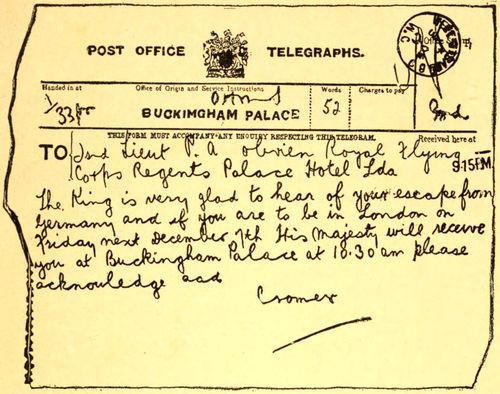 POST OFFICE TELEGRAPHS.
Handed in at Office of Origin and Service Instructions Words Charges to pay
OHMS
BUCKINGHAM PALACE 52
THIS FORM MUST ACCOMPANY ANY ENQUIRY RESPECTING THIS TELEGRAM. Received here at
TO 2nd Lieut P. A Obrien Royal Flying 9.15PM
Corps Regents Palace Hotel Ldn
The King is very glad to hear of your escape from
Germany and if you are to be in London on
Friday next December 7th His Majesty will receive
you at Buckingham Palace at 10.30 am please
acknowledge
Cromer